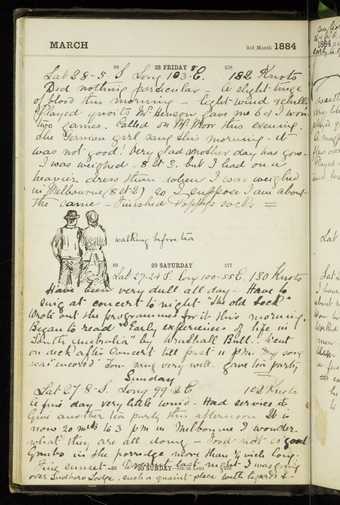 MARCH 3rd Month 1884
28 FRIDAY
Lat 28-5 S Long 103 E. 182 Knots
Did nothing particular - A slight tinge
of blood this morning - light wind
Played quoits Mr Henson gave me 6 & I won
two games. Called on Mr Moor this evening.
The German girl sang this morning it
was not good. Very glad another day has gone.
I was weighed 8st 3. but I had on a
heavier dress than when I was weighed
in Melbourne so I suppose I am about
the same - Finished Poppy's sock
walking before tea
29 SATURDAY
Lat 27-24 S. Long 100-55 E. 150 Knots
Have been very dull all day - Have to
sing at concert to night "The old Sock"
Wrote out the programmes for it this morning.
Began to read "Early experiences of life in
South Australia" by Bull. Went
on deck after Concert till past 11 P.M. My song
was encored. Tom sang very well. Gave tea party
Sunday
Lat 27 8 S. Long 99 E 122 Knots
A fine day very little wind - Had service &
Give another tea party this afternoon. It is
now 20 mts to 3 pm in Melbourne I wonder
what they are all doing - Food not so good
Grubs in the porridge more than 1/2 inch long.
Fine sunset - Dreamt last night I was going
over Lodge, such a quaint place with